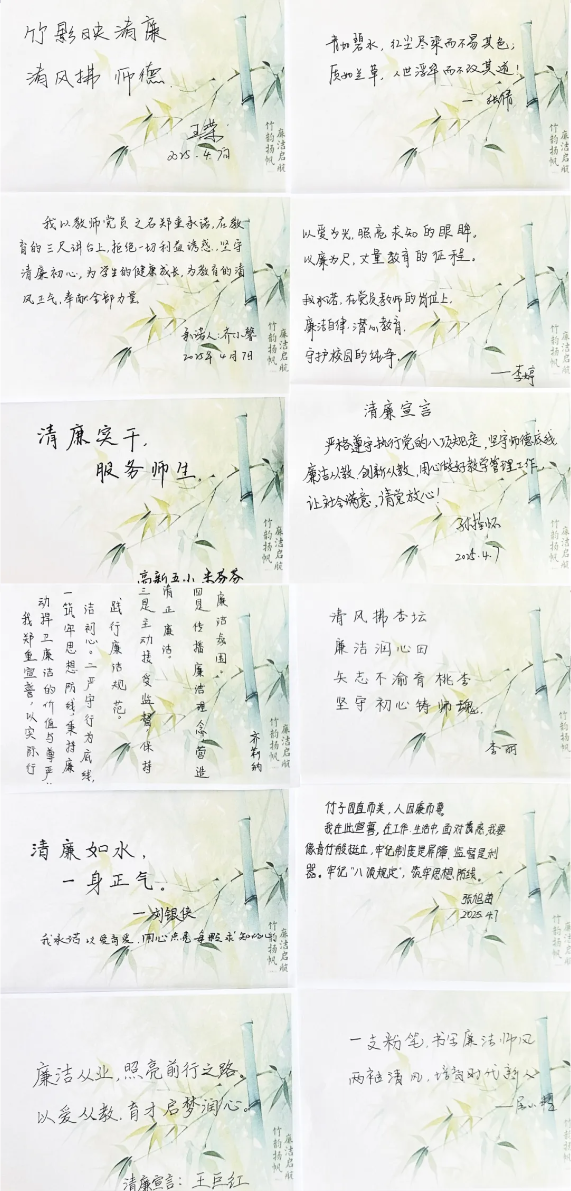 竹影映清廉
清风拂师德
王荣
2025.4.7日
廉洁启航
竹韵扬帆
青如碧水，红尘尽染而不易其色；
质如兰草，人世浮华而不改其道！
—张倩
廉洁启航
竹韵扬帆
我以教师党员之名郑重承诺，在教
育的三尺讲台上，拒绝一切利益诱惑，坚守
清廉初心，为学生的健康成长，为教育的清
风正气，奉献全部力量
承诺人：齐小馨
2025年4月7日
廉洁启航
竹韵扬帆
以爱为光，照亮求知的眼眸。
以廉为尺，丈量教育的征程。
我承诺，在党员教师的岗位上，
廉洁自律，潜心教育，
守护校园的纯净。
——李婷
廉洁启航
竹韵扬帆
清廉实干，
服务师生。
高新五小 朱芬芬
廉洁启航
竹韵扬帆
清廉宣言
严格遵守执行党的八项规定，坚守师德底线
廉洁从教，创新从教，用心做好教学管理工作，
让社会满意，请党放心！
2025.4.7
廉洁启航
竹韵扬帆
我郑重宣誓，以实际行
动捍卫廉洁的价值与尊严
一筑牢思想防线，秉持廉
洁初心。二严守行为底线，
践行廉洁规范。
三是主动接受监督，保持
清正廉洁。
四是传播廉洁理念营造
廉洁氛围。
齐莉纳
廉洁启航
竹韵扬帆
清风拂杏坛
廉洁润心田
矢志不渝育桃李
坚守初心铸师魂
李丽
廉洁启航
竹韵扬帆
清廉如水，
一身正气。
—刘银侠
我承诺以爱育爱，用心点亮每颗求知的心
廉洁启航
竹韵扬帆
竹子因直而美，人因廉而尊。
我在此宣誓，在工作、生活中，面对诱惑，我要
像青竹般挺立，牢记制度是屏障，监督是利
器。牢记“八项规定”，筑牢思想防线。
张旭苗
2025.4.7
廉洁启航
竹韵扬帆
廉洁从业，照亮前行之路。
以爱从教，育才启梦润心。
清廉宣言：王巨红
廉洁启航
竹韵扬帆
一支粉笔，书写廉洁师风
两袖清风，培育时代新人
廉洁启航
竹韵扬帆